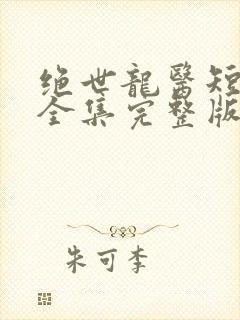 绝世龍醫短
全集完整版
朱可李